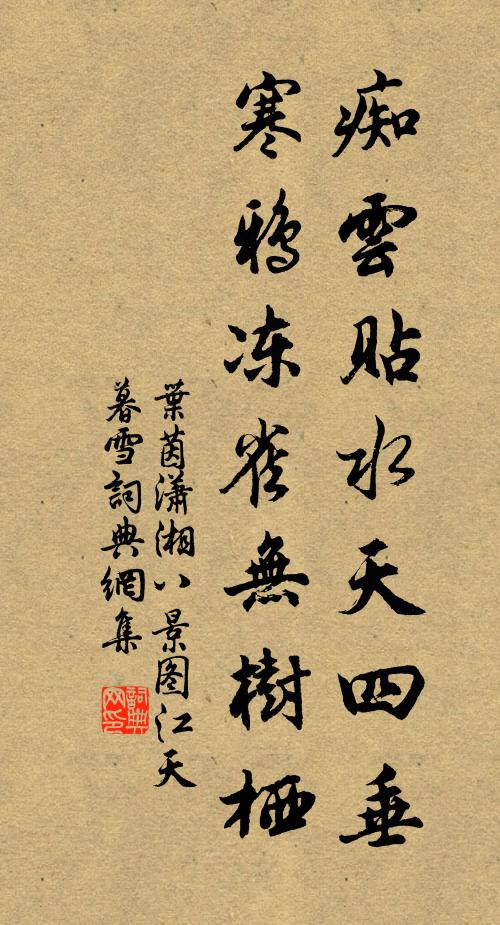 痴雲貼水天四垂
寒鴉冻雀無樹栖
葉茵瀟湘八景图江天
暮雪詞典網集
詞典网印